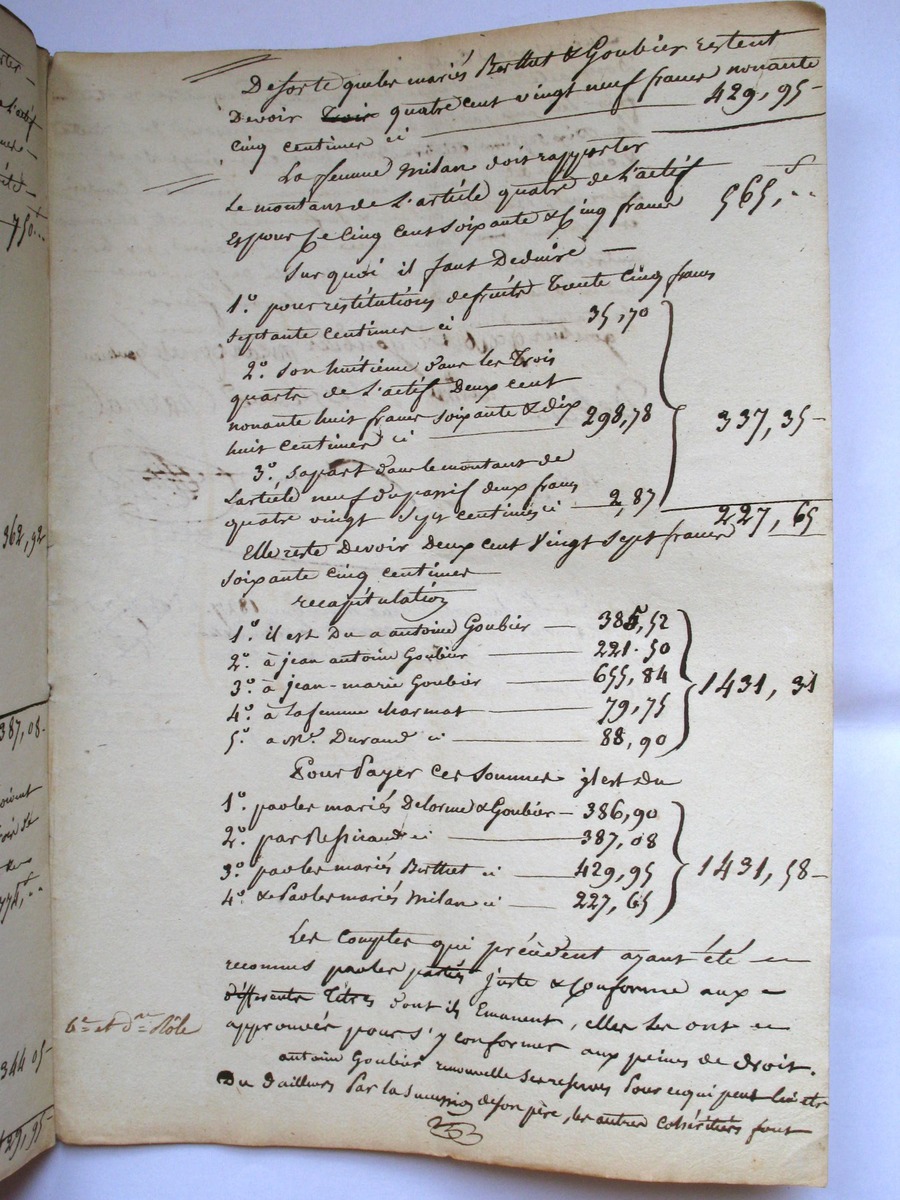 rter —
L'actif
ere —
ité —
750..
362,92
387,08-
oivent
774,..
344 05-
429,95-
Desorte que les mariés Berthet & Goubier restent
Devoir trois quatre cent vingt neuf francs nonante
cinq centimes ci — 429,95-
La femme Milan doit rapporter
Le montant de L'article quatre de L'actif
Est pour ce Cinq cent soixante & Cinq francs 565,..
Sur quoi il faut Deduire —
1.° pour restitutions defruits trente Cinq francs
septante centimes ci — 35,70
2.° Son huitième dans les Trois
quarts de L'actif Deux cent
nonante huit francs soixante & dix
huit centimes ci — 298,78 337,35-
3.° Sapart dans le montant de
L'article neuf du passif deux francs
quatre vingt Sept centimes ci — 2,87
227,65
Elle reste Devoir Deux cent Vingt Sept francs
soixante cinq centimes
recapitulation
1.° il est Du a antoine Goubier — 385,52
2.° à jean antoine Goubier — 221.50
3.° à jean-marie Goubier — 655,84 1431,31
4.° à Lafemme charmat — 79,75
5.° a Mr. Durand ci — 88,90
Pour Payer ces Sommes il est Du
1.° par les mariés Delorme & Goubier — 386,90
2.° par Ressicaud ci — 387,08
3.° par les mariés Berthet ci — 429,95 1431,58-
4.° & Par les mariés Milan ci — 227,65
Les Comptes qui précèdent ayant été —
reconnus par les parties juste & Conforme aux —
differents Titres dont ils Emanent, elles les ont —
approuvés pour s'y conformer aux peines de droit.
6e et dre. Rôle
antoine Goubier renouvelle ses reserves Pour cequi peut lui etre
Du dailleurs Par la Succession de son père, les autres cohéritiers font